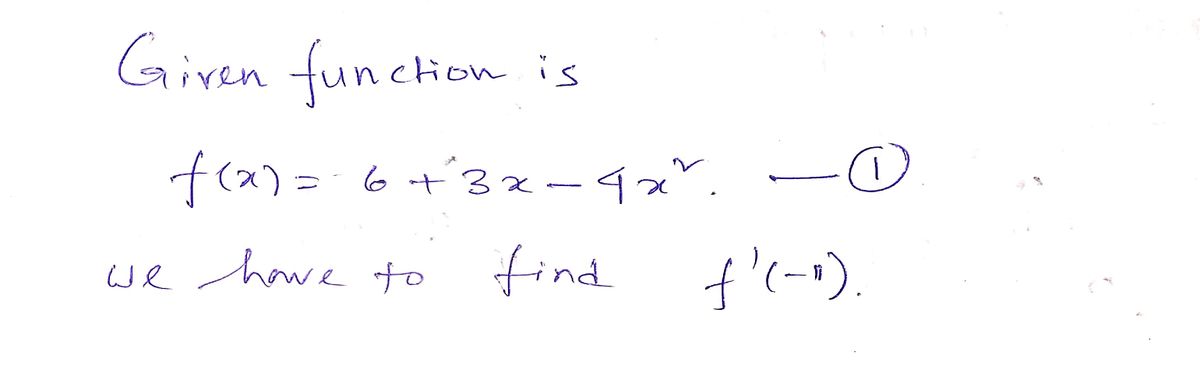 Given function is
f(x) = 6 + 3x - 4x². — ①
we have to find f'(-11).